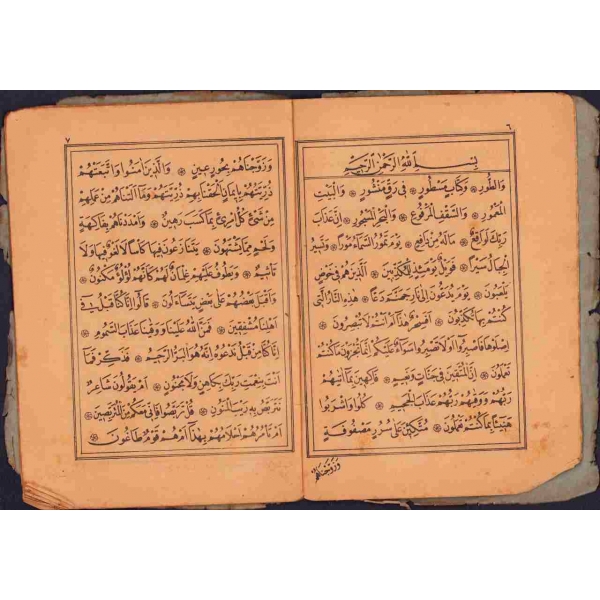 ٦
بسم الله الرحمن الرحيم
وَالطُّورِ ۞ وَكِتَابٍ مَسْطُورٍ ۞ فِى رَقٍّ مَنْشُورٍ ۞ وَالْبَيْتِ
الْمَعْمُورِ ۞ وَالسَّقْفِ الْمَرْفُوعِ ۞ وَالْبَحْرِ الْمَسْجُورِ ۞ اِنَّ عَذَابَ
رَبِّكَ لَوَاقِعٌ ۞ مَالَهُ مِنْ دَافِعٍ ۞ يَوْمَ تَمُورُ السَّمَاءُ مَوْرًا ۞ وَتَسِيرُ
الْجِبَالُ سَيْرًا ۞ فَوَيْلٌ يَوْمَئِذٍ لِلْمُكَذِّبِينَ ۞ اَلَّذِينَ هُمْ فِى خَوْضٍ
يَلْعَبُونَ ۞ يَوْمَ يُدَعُّونَ اِلَى نَارِ جَهَنَّمَ دَعًّا ۞ هٰذِهِ النَّارُ الَّتِى
كُنْتُمْ بِهَا تُكَذِّبُونَ ۞ اَفَسِحْرٌ هٰذَا اَمْ اَنْتُمْ لَا تُبْصِرُونَ ۞
اِصْلَوْهَا فَاصْبِرُوا اَوْ لَا تَصْبِرُوا سَوَاءٌ عَلَيْكُمْ اِنَّمَا تُجْزَوْنَ مَا كُنْتُمْ
تَعْمَلُونَ ۞ اِنَّ الْمُتَّقِينَ فِى جَنَّاتٍ وَنَعِيمٍ ۞ فَاكِهِينَ بِمَا اٰتٰيهُمْ
رَبُّهُمْ وَوَقٰيهُمْ رَبُّهُمْ عَذَابَ الْجَحِيمِ ۞ كُلُوا وَاشْرَبُوا
هَنِيئًا بِمَا كُنْتُمْ تَعْمَلُونَ ۞ مُتَّكِئِينَ عَلَى سُرُرٍ مَصْفُوفَةٍ
وَزَوَّجْنَاهُمْ
٧
وَزَوَّجْنَاهُمْ بِحُورٍ عِينٍ ۞ وَالَّذِينَ اٰمَنُوا وَاتَّبَعَتْهُمْ
ذُرِّيَّتُهُمْ بِاِيمَانٍ اَلْحَقْنَا بِهِمْ ذُرِّيَّتَهُمْ وَمَا اَلَتْنَاهُمْ مِنْ عَمَلِهِمْ
مِنْ شَىْءٍ كُلُّ امْرِئٍ بِمَا كَسَبَ رَهِينٌ ۞ وَاَمْدَدْنَاهُمْ بِفَاكِهَةٍ
وَلَحْمٍ مِمَّا يَشْتَهُونَ ۞ يَتَنَازَعُونَ فِيهَا كَاْسًا لَا لَغْوٌ فِيهَا وَلَا
تَاْثِيمٌ ۞ وَيَطُوفُ عَلَيْهِمْ غِلْمَانٌ لَهُمْ كَاَنَّهُمْ لُؤْلُؤٌ مَكْنُونٌ ۞
وَاَقْبَلَ بَعْضُهُمْ عَلَى بَعْضٍ يَتَسَاءَلُونَ ۞ قَالُوا اِنَّا كُنَّا قَبْلُ فِى
اَهْلِنَا مُشْفِقِينَ ۞ فَمَنَّ اللهُ عَلَيْنَا وَوَقٰينَا عَذَابَ السَّمُومِ ۞
اِنَّا كُنَّا مِنْ قَبْلُ نَدْعُوهُ اِنَّهُ هُوَ الْبَرُّ الرَّحِيمُ ۞ فَذَكِّرْ فَمَا
اَنْتَ بِنِعْمَتِ رَبِّكَ بِكَاهِنٍ وَلَا مَجْنُونٍ ۞ اَمْ يَقُولُونَ شَاعِرٌ
نَتَرَبَّصُ بِهِ رَيْبَ الْمَنُونِ ۞ قُلْ تَرَبَّصُوا فَاِنِّى مَعَكُمْ مِنَ الْمُتَرَبِّصِينَ ۞
اَمْ تَاْمُرُهُمْ اَحْلَامُهُمْ بِهٰذَا اَمْ هُمْ قَوْمٌ طَاغُونَ ۞